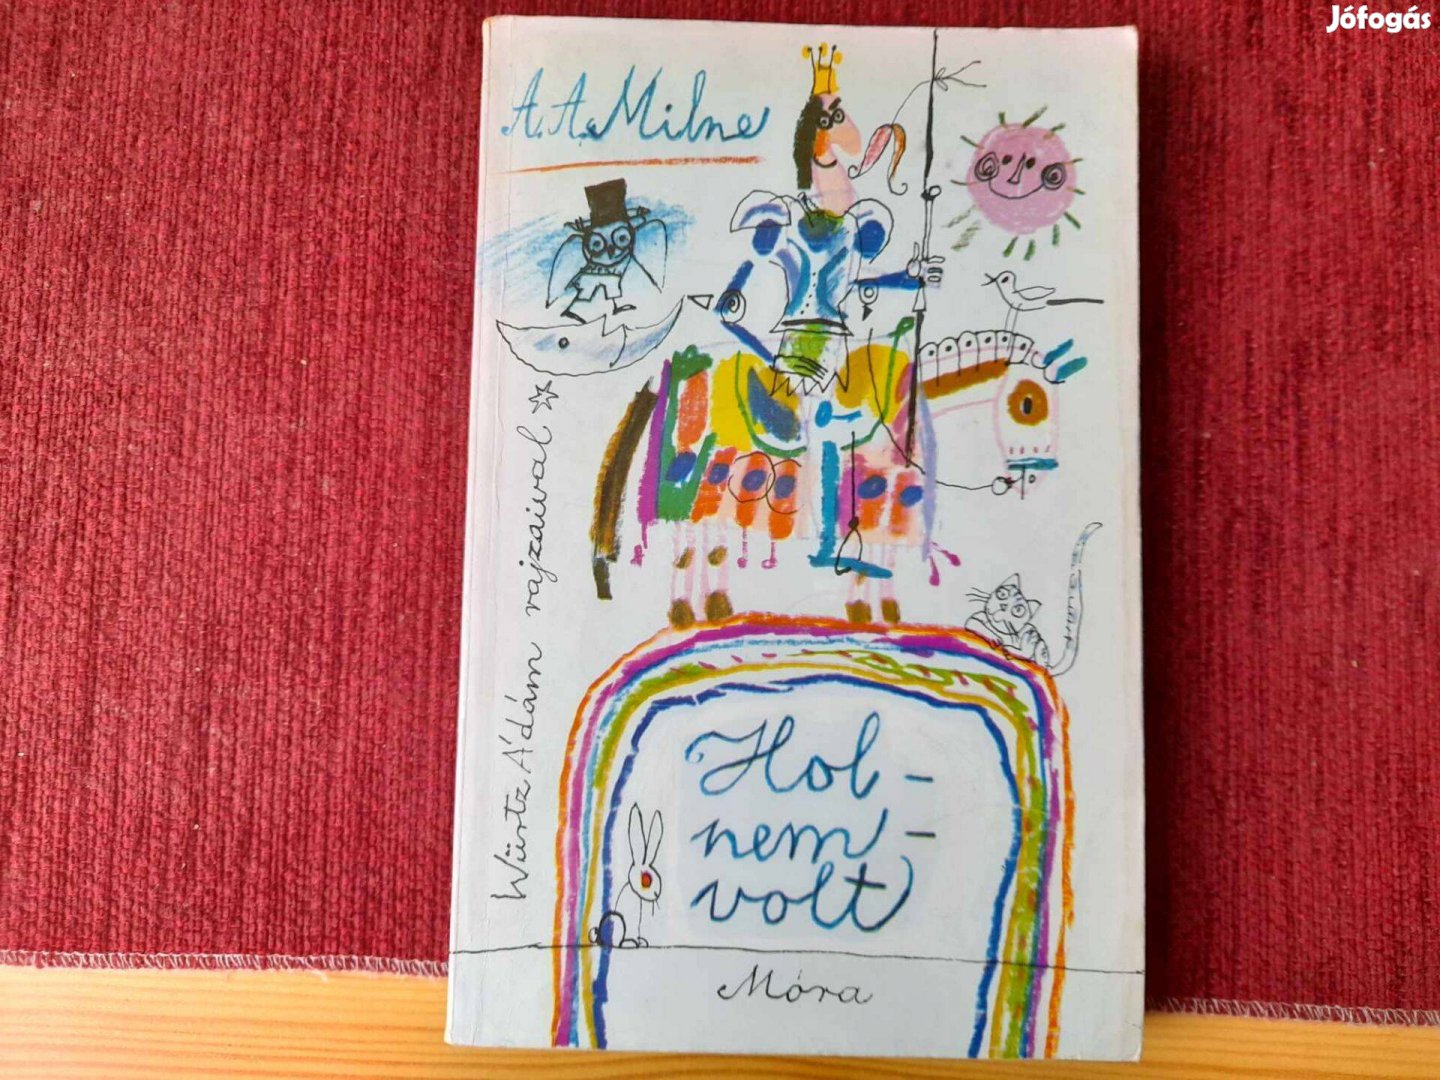 Jófogás
A. A. Milne
Würtz Ádám rajzaival
Hol-
nem-
volt
Móra